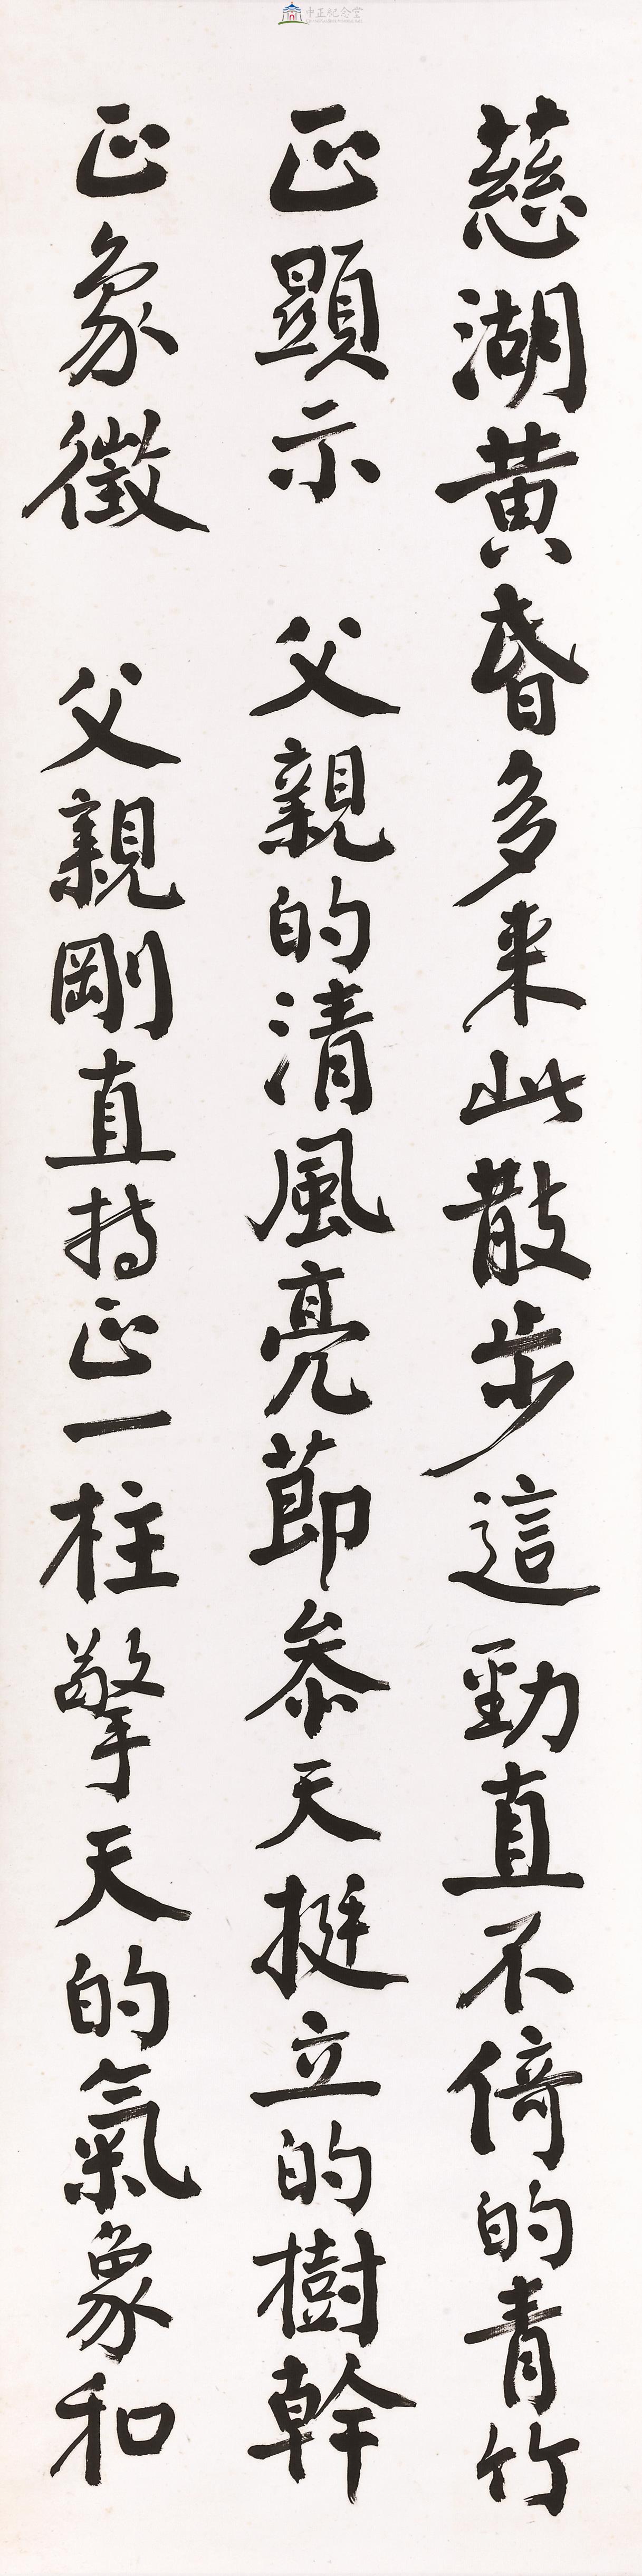 中正紀念堂
慈湖黃昏多来此散步這勁直不倚的青竹
正顯示 父親的清風亮節参天挺立的樹幹
正象徵 父親剛直持正一柱擎天的氣象和